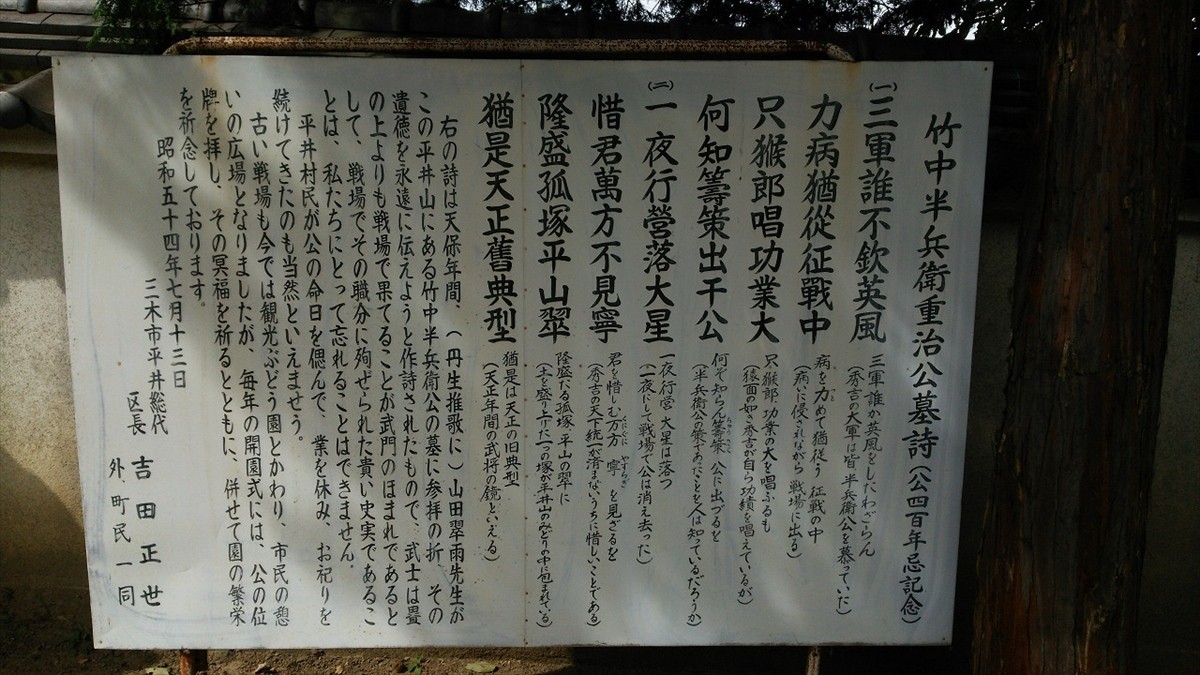 竹中半兵衛重治公墓詩(公四百年忌記念)
(一)三軍誰不欽英風
三軍誰か英風をしたわざらん
(秀吉の大軍は皆、半兵衛公を慕っていた)
力病猶從征戰中
病を力めて猶従う 征戦の中
(病に侵されながら 戦場に出る)
只猴郎唱功業大
只猴郎 功業の大を唱ふるも
(猿面の如き秀吉が自ら功績を唱えているが)
何知籌策出干公
何ぞ知らん籌策 公に出づるを
(半兵衛公の策であったことを人は知っているだろうか)
(二)一夜行營落大星
一夜行営 大星は落つ
(一夜にして戦場で公は消え去った)
惜君萬方不見寧
君を惜しむ万方 寧を見ざるを
(秀吉の天下統一が済まないうちに惜しいことである)
隆盛孤塚平山翠
隆盛だる孤塚 平山の翠に
(土を盛り上げた一つの塚が平井山のみどりの中に包まれている)
猶是天正舊典型
猶是は天正の旧典型
(天正年間の武将の鏡といえる)
右の詩は天保年間、(丹生推歌に)山田翠雨先生が
この平井山にある竹中半兵衛公の墓に参拝の折、その
遺徳を永遠に伝えようと作詩されたもので、武士は畳
の上よりも戦場で果てることが武門のほまれであると
して、戦場でその職分に殉ぜられた貴い史実であるこ
とは、私たちにとって忘れることはできません。
平井村民が公の命日を偲んで、業を休み、お祀りを
続けてきたのも当然といえませう。
古い戦場も今では観光ぶどう園とかわり、市民の憩
いの広場となりましたが、毎年の開園式には、公の位
牌を拝し、その冥福を祈るとともに、併せて園の繁栄
を祈念しております。
昭和五十四年七月十三日
三木市平井総代
区長 吉田正世
外、町民一同